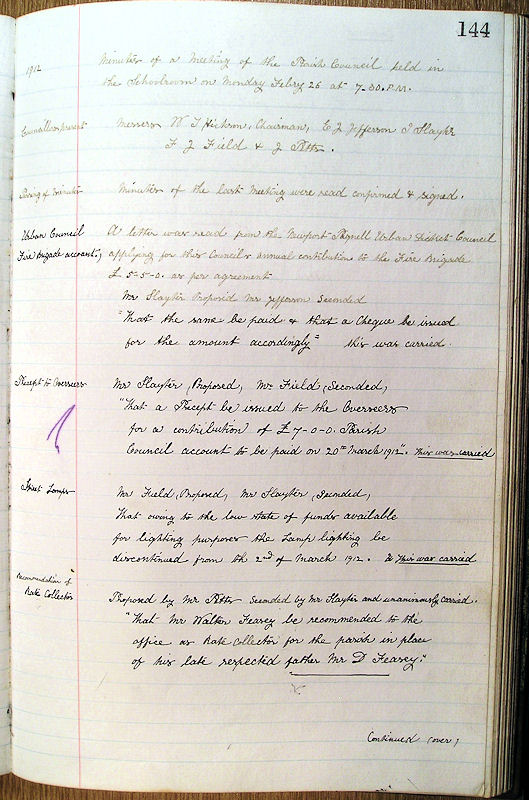 144
1912
Minutes of a Meeting of the Parish Council held in
the Schoolroom on Monday Febry 26 at 7-30. P.M.
Councillors present
Messers W T Hickson, Chairman, C J Jefferson J Slayter
F J Field & J Potts.
Passing of minutes
Minutes of the last Meeting were read confirmed & signed.
Urban Council
Fire Brigade account,
A letter was read from the Newport Pagnell Urban District Council
applying for this Councils annual contribution to the Fire Brigade
£ 5-5-0. as per agreement
Mr Slayter Proposed Mr Jefferson Seconded
"That the same be paid & that a Cheque be issued
for the amount accordingly" this was carried.
Precept to Overseers
Mr Slayter, Proposed, Mr Field, Seconded,
"That a Precept be issued to the Overseers
for a contribution of £ 7-0-0. Parish
Council account to be paid on 20th March 1912". This was carried
Street Lamps
Mr Field, Proposed, Mr Slayter, Seconded,
That owing to the low state of funds available
for lighting purposes the Lamp lighting be
discontinued from the 2nd of March 1912. This was carried
Recomendation of
Rate Collector
Proposed by Mr Potts Seconded by Mr Slayter and unanimously carried.
"That Mr Walton Fearey be recommended to the
office as Rate Collector for the parish in place
of his late respected father Mr D Fearey."
Continued (over)